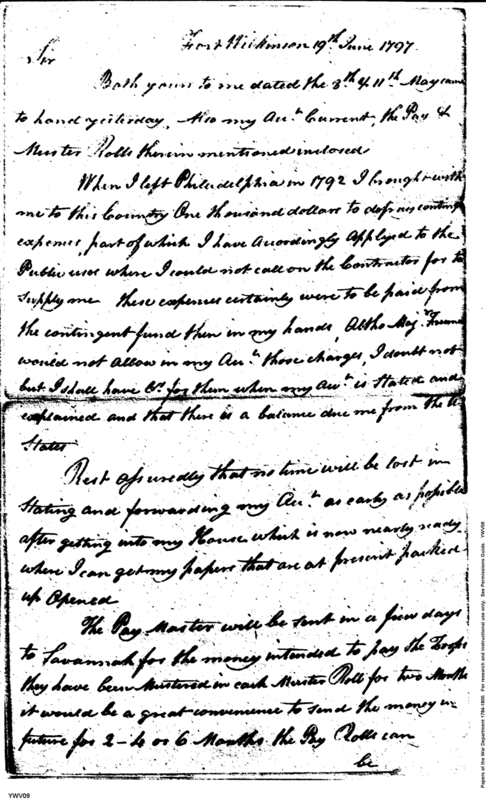 Fort Wilkinson 19th June 1797.
Sir
Both yours to me dated the 8th & 11th May came
to hand yesterday, Also my Acct. Current, the Pay &
Muster Rolls therein mentioned inclosed
When I left Philadelphia in 1792 I brought with
me to this Country One thousand dollars to defray conting
expences, part of which I have accordingly applyed to the
Public uses where I could not call on the Contractor for to
supply me these expences certainly were to be paid from
the contingent fund then in my hands, Altho Majr.
would not allow in my Acct. those charges, I doubt not
but I shall have Cr. for them when my Acct. is Stated and
explained and that there is a balance due me from the U
States
Rest assuredly that no time will be lost in
Stating and forwarding my Acct. as early as possible
after getting into my House which is now nearly ready
where I can get my papers that are at present packed
up Opened
The Pay Master will be sent in a few days
to Savannah for the money intended to pay the Troops
they have been Mustered in each Muster Roll for two Months
it would be a great convenience to send the money in
future for 2 - 4 or 6 Months the Pay Rolls can
be
YWV09
Papers of the War Department 1784-1800. For research and instructional use only. See Permissions Guide. YWV09